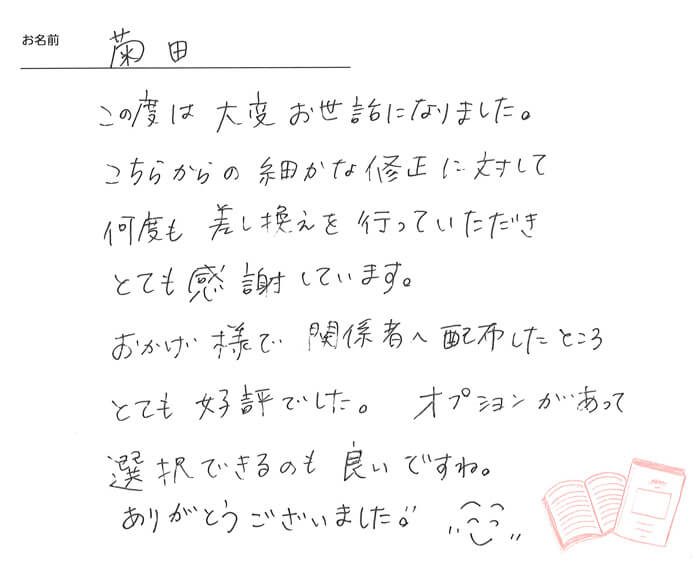 お名前 菊田
この度は大変お世話になりました。
こちらからの細かな修正に対して
何度も差し換えを行っていただき
とても感謝しています。
おかげ様で関係者へ配布したところ
とても好評でした。オプションがあって
選択できるのも良いですね。
ありがとうございました。